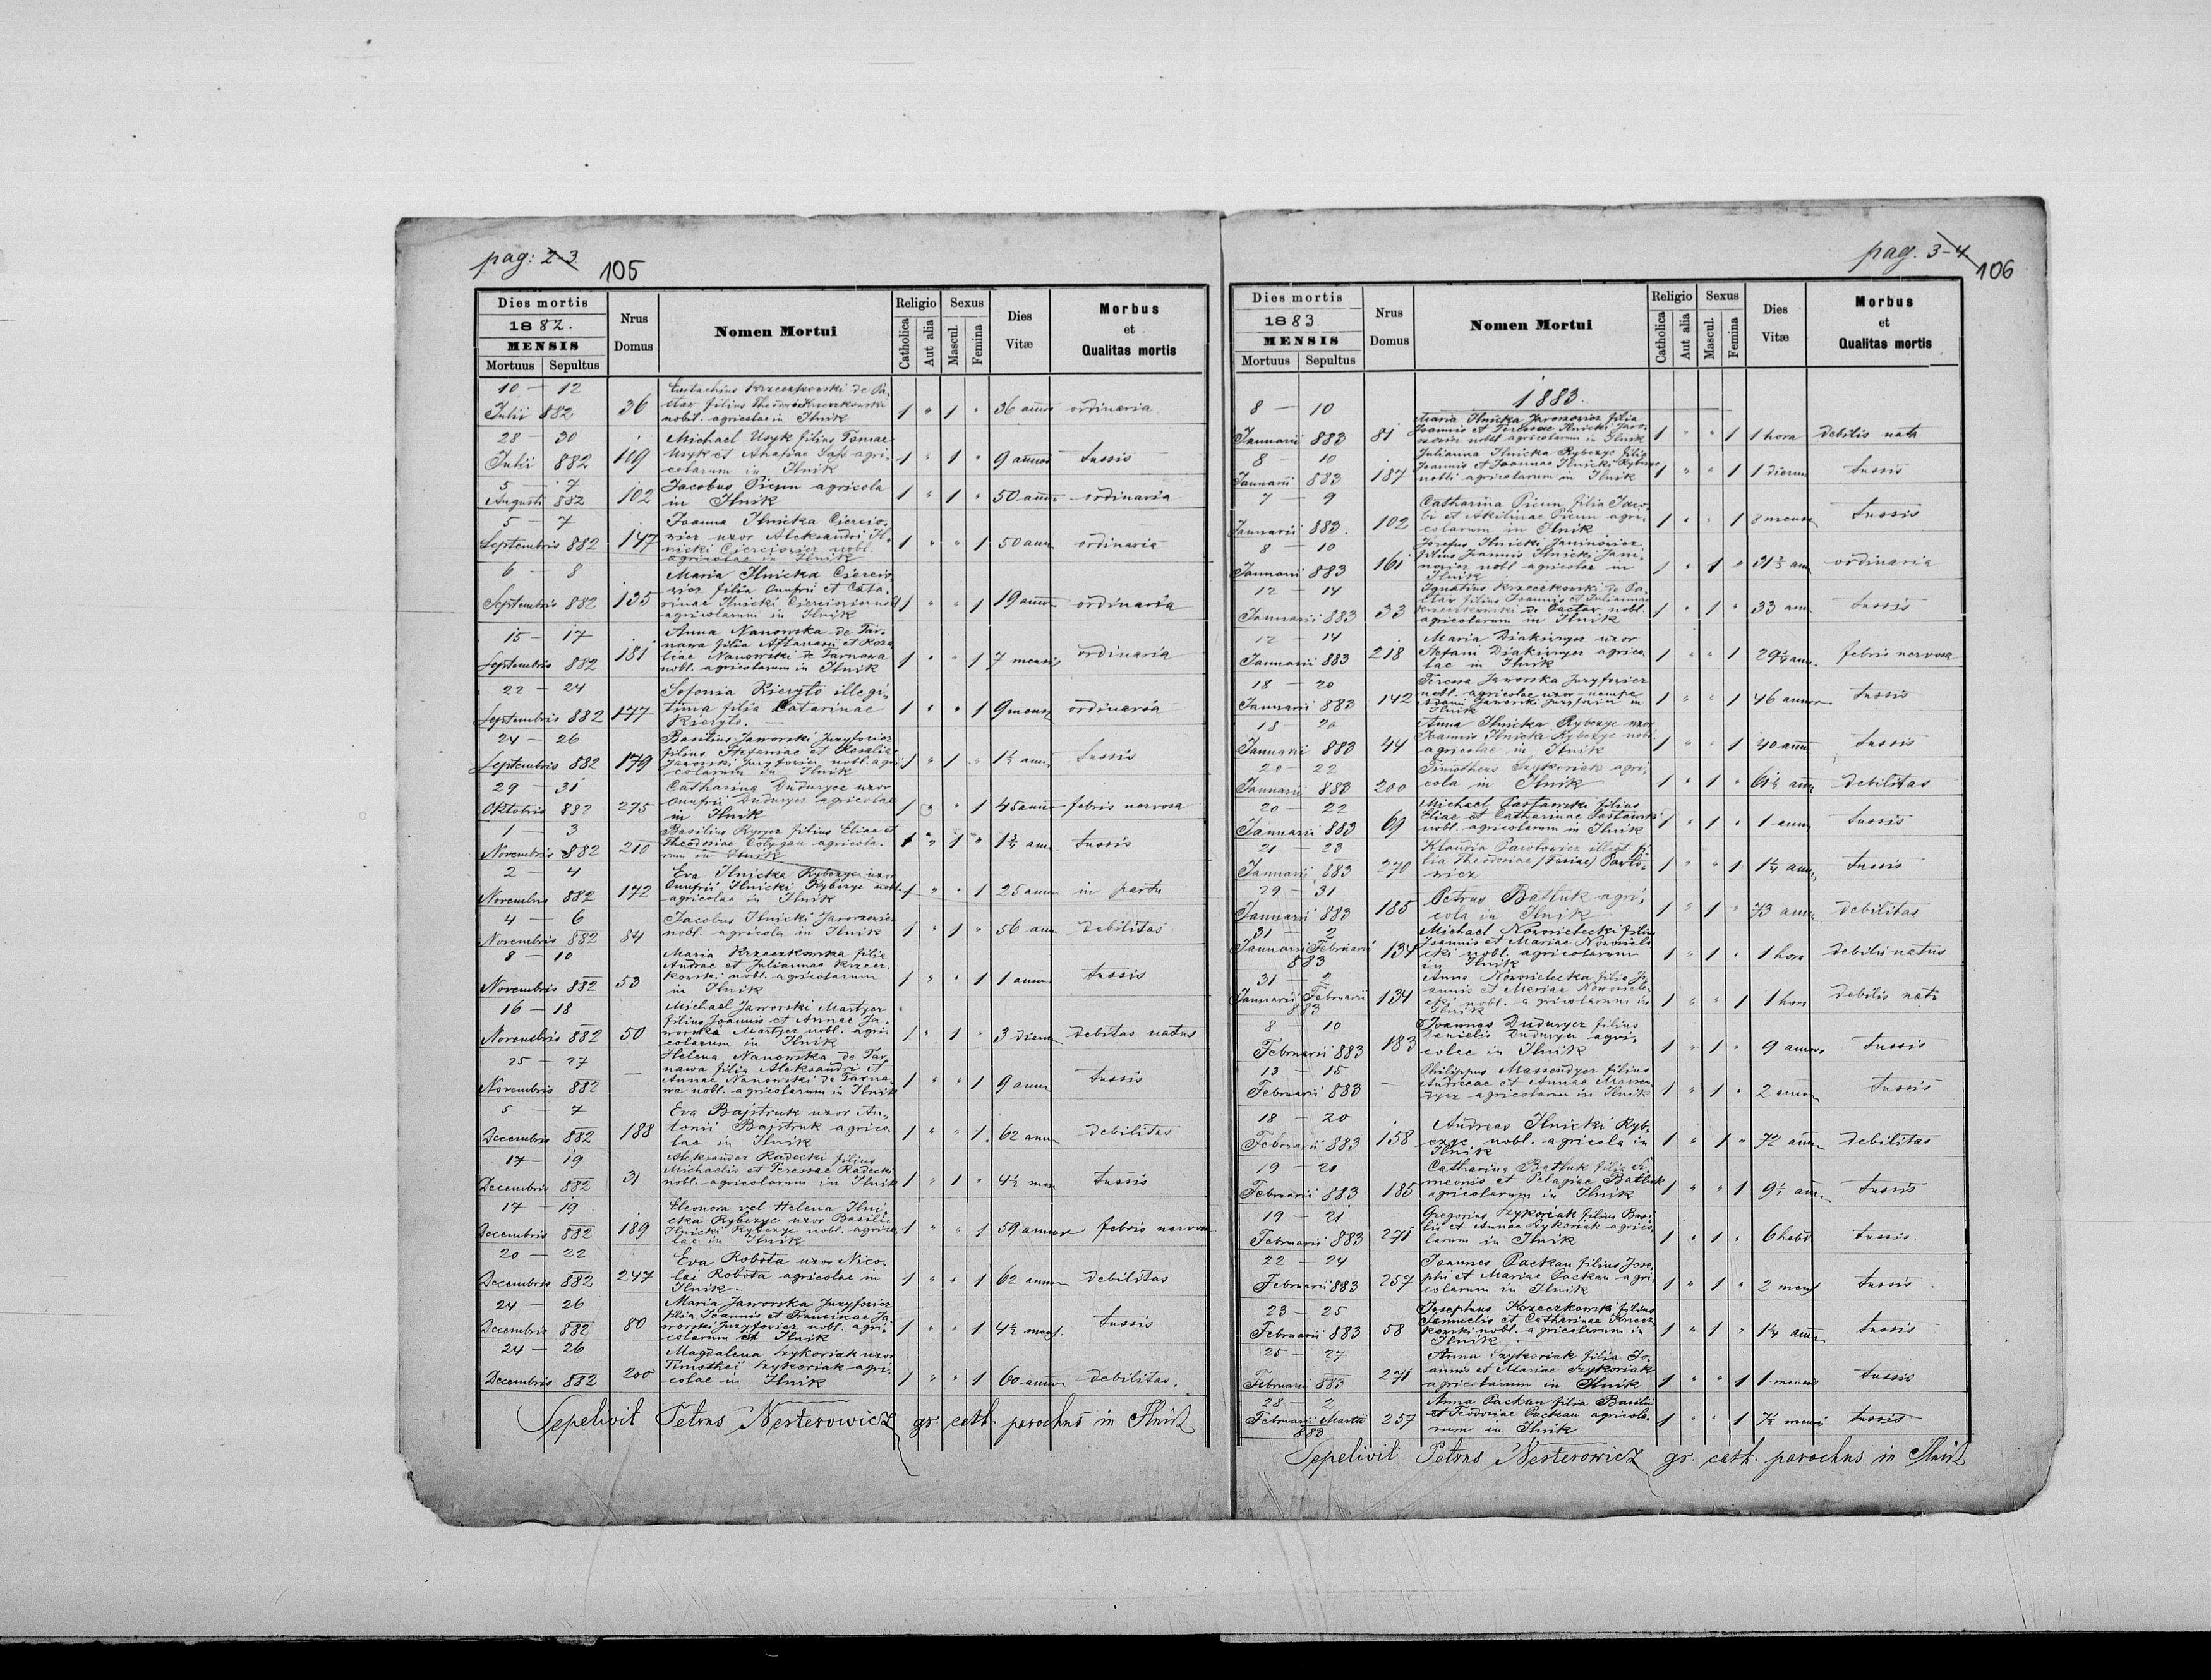 pag: 2-3
105
Dies mortis
1882.
MENSIS
Mortuus Sepultus
Nrus Domus
Nomen Mortui
Religio
Catholica
Aut alia
Sexus
Mascul.
Femina
Dies Vitæ
Morbus et Qualitas mortis
10 — 12
Julii 882 36 Eustachius Krzeczkowski de Pa-
ctar filius Theodori Krzeczkowski
nobil. agricolae in Ilnik 1 " 1 " 36 annos ordinaria
28 — 30
Julii 882 109 Michael Usyk filius Tomae
Usyk et Ahafiae Sap agri-
colarum in Ilnik 1 " 1 " 9 annos tussis
5 — 7
Augusti 882 102 Jacobus Picun agricola
in Ilnik 1 " 1 " 50 annos ordinaria
5 — 7
Septembris 882 147 Joanna Ilnicka Ciercio-
wicz uxor Aleksandri Il-
nicki Cierciowicz nobl.
agricolae in Ilnik 1 " " 1 50 ann ordinaria
6 — 8
Septembris 882 135 Maria Ilnicka Ciercio
wicz filia Onufrii et Cata-
rinae Ilnicki Cierciowicz nobl
agricolarum in Ilnik 1 " " 1 19 annos ordinaria
15 — 17
Septembris 882 181 Anna Nanowska de Tar-
nawa filia Aftanasii et Rosa
liae Nanowski de Tarnawa
nobl. agricolarum in Ilnik 1 " " 1 7 mensis ordinaria
22 — 24
Septembris 882 177 Sofonia Kieryto illegi-
tima filia Catarinae
Kieryto. 1 " " 1 9 mens ordinaria
24 — 26
Septembris 882 179 Basilius Jaworski Juzyfowicz
filius Stefaniae et Rosaliae
Jaworski Juzyfowicz nobl. agri
colarum in Ilnik 1 " 1 " 1½ ann tussis
29 — 31
Oktobris 882 275 Catharina Duduryez uxor
Onufrii Duduryez agricolae
in Ilnik 1 " " 1 45 annos febris nervosa
1 — 3
Novembris 882 210 Basilius Kyryez filius Eliae et
Theodoriae Colygan agricola-
rum in Ilnik 1 " 1 " 1½ ann tussis
2 — 4
Novembris 882 172 Eva Ilnicka Rybczyc uxor
Onufrii Ilnicki Rybczyc nobl.
agricolae in Ilnik 1 " " 1 25 annos in partu
4 — 6
Novembris 882 84 Jacobus Ilnicki Jaworzowicz
nobl. agricola in Ilnik 1 " 1 " 56 ann debilitas
8 — 10
Novembris 882 53 Maria Krzeczkowska filia
Andrae et Juliannae Krzecz-
kowski nobl. agricolarum
in Ilnik 1 " " 1 1 annos tussis
16 — 18
Novembris 882 50 Michael Jaworski Martyez
filius Joannis et Annae Ja-
worska Martyez nobl. agri-
colarum in Ilnik 1 " 1 " 3 dierum debitas natus
25 — 27
Novembris 882 — Helena Nanowska de Tar-
nawa filia Aleksandri et
Annae Nanowski de Tarna-
wa nobl. agricolarum in Ilnik 1 " " 1 9 annos tussis
5 — 7
Decembris 882 188 Eva Bajstruk uxor An-
tonii Bajstruk agrico
lae in Ilnik 1 " " 1 62 annos debilitas
17 — 19
Decembris 882 31 Aleksander Radecki filius
Michaelis et Teressae Radecki
nobl. agricolarum in Ilnik 1 " 1 " 4½ mens tussis
17 — 19
Decembris 882 189 Eleonora vel Helena Ilni-
cka Rybczyc uxor Basilii
Ilnicki Rybczyc nobl. agrico
lae in Ilnik 1 " " 1 59 annos febris nervosa
20 — 22
Decembris 882 247 Eva Robota uxor Nico-
lai Robota agricolae in
Ilnik 1 " " 1 62 annos debilitas
24 — 26
Decembris 882 80 Maria Jaworska Juzyfowicz
filia Joannis et Franciscae Ja-
worski Juzyfowicz nobl. agri-
colarum et Ilnik 1 " " 1 4½ mens. tussis
24 — 26
Decembris 882 200 Magdalena Szykoriak uxor
Timothei Szykoriak agri-
colae in Ilnik 1 " " 1 60 annos debilitas.
Sepelivit Petrus Nesterowicz gr. cath. parochus in Ilnik
pag. 3-4
106
Dies mortis
1883.
MENSIS
Mortuus Sepultus
Nrus Domus
Nomen Mortui
Religio
Catholica
Aut alia
Sexus
Mascul.
Femina
Dies Vitæ
Morbus et Qualitas mortis
1883.
8 — 10
Januarii 883 81 Maria Ilnicka Jaworzowicz filia
Joannis et Teressae Ilnicki Jawo-
rzowicz nobl agricolarum in Ilnik 1 " " 1 1 hora debilis nata
8 — 10
Januarii 883 187 Julianna Ilnicka Rybczyc filia
Joannis et Joannae Ilnicki Rybczyc
nobli agricolarum in Ilnik 1 " " 1 1 dierum tussis
7 — 9
Januarii 883. 102 Catharina Picun filia Jaco-
bi et Akilinae Picun agri-
colarum in Ilnik 1 " " 1 8 mens tussis
8 — 10
Januarii 883 161 Josefus Ilnicki Janinowicz
filius Joannis Ilnicki Jani-
nowicz nobl agricolae in
Ilnik 1 " 1 " 31½ ann ordinaria
12 — 14
Januarii 883 33 Ignatius Krzeczkowski de Pa-
ctar filius Joannis et Juliannae
Krzeczkowski de Pactar nobl.
agricolarum in Ilnik 1 " 1 " 33 ann tussis
12 — 14
Januarii 883 218 Maria Diakunycz uxor
Stefani Diakunycz agrico
lae in Ilnik 1 " " 1 29½ ann. febris nervosa
18 — 20
Januarii 883 142 Teressa Jaworska Juzyfowicz
nobl. agricolae uxor nempe
Adami Jaworski Juzyfowicz in
Ilnik 1 " " 1 46 annos tussis
18 — 20
Januarii 883 44 Anna Ilnicka Rybczyc uxor
Joannis Ilnicka Rybczyc nobi
agricolae in Ilnik 1 " " 1 40 ann tussis
20 — 22
Januarii 883 200 Timotheus Szykoriak agri-
cola in Ilnik 1 " 1 " 61½ ann debilitas
20 — 22
Januarii 883 69 Michael Pastawski filius
Eliae et Catharinae Pastawski
nobl. agricolarum in Ilnik 1 " 1 " 1 ann tussis
21 — 23
Januarii 883 270 Klaudia Pawlowicz illegt. fi-
lia Theodosiae (Fesiae) Pawlo-
wicz 1 " " 1 1¼ ann tussis
29 — 31
Januarii 883 185 Petrus Batluk agri-
cola in Ilnik 1 " 1 " 73 ann debilitas
31 — 2
Januarii Februarii
883 134 Michael Nowosielecki filius
Joannis et Mariae Nowosiele
cki nobl. agricolarum
in Ilnik 1 " 1 " 1 hora debilis natus
31 — 2
Januarii Februarii
883 134 Anna Nowosielecka filia Jo
annis et Mariae Nowosiele-
cki nobl. agricolarum in
Ilnik 1 " " 1 1 hora debilis nata
8 — 10
Februarii 883 183 Joannes Duduryez filius
Danielis Duduryez agri-
colae in Ilnik 1 " 1 " 9 annos tussis
13 — 15
Februarii 883 — Philippus Massendyez filius
Andreae et Annae Massen
dyez agricolarum in Ilnik 1 " 1 " 2 tussis
18 — 20
Februarii 883 158 Andreas Ilnicki Ryb-
czyc nobl. agricola in
Ilnik 1 " 1 " 72 ann debilitas
19 — 21
Februarii 883 185 Catharina Batluk filia Si
meonis et Pelagiae Batluk
agricolarum in Ilnik 1 " " 1 9½ ann tussis
19 — 21
Februarii 883 271 Gregorius Szykoriak filius Basi
lii et Annae Szykoriak agrico
larum in Ilnik 1 " 1 " 6 hebd tussis.
22 — 24
Februarii 883 257 Joannes Packan filius Jose-
phi et Mariae Packan agri
colarum in Ilnik 1 " 1 " 2 mens tussis.
23 — 25
Februarii 883 58 Josephus Krzeczkowski filius
Samuelis et Catharinae Krzecz-
kowski nobl. agricolarum in
Ilnik 1 " 1 " 1¼ ann tussis
25 — 27
Februarii 883 271 Anna Szykoriak filia Jo-
annis et Mariae Szykoriak
agricolarum in Ilnik 1 " " 1 1 mensis tussis
28 — 2
Februarii Martii
883 257 Anna Packan filia Basilii
et Teodosiae Packan agricola-
rum in Ilnik 1 " " 1 7½ mensi tussis
Sepelivit Petrus Nesterowicz gr. cath. parochus in Ilnik